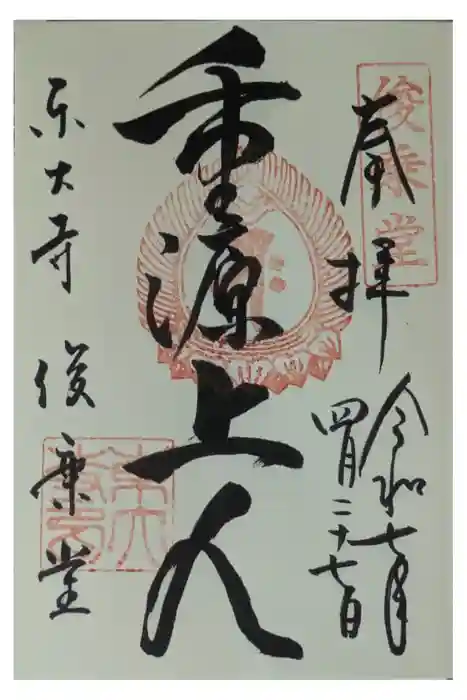 奉拝
俊乗堂
令和七年
四月二十七日
重源上人
東大寺 俊乗堂